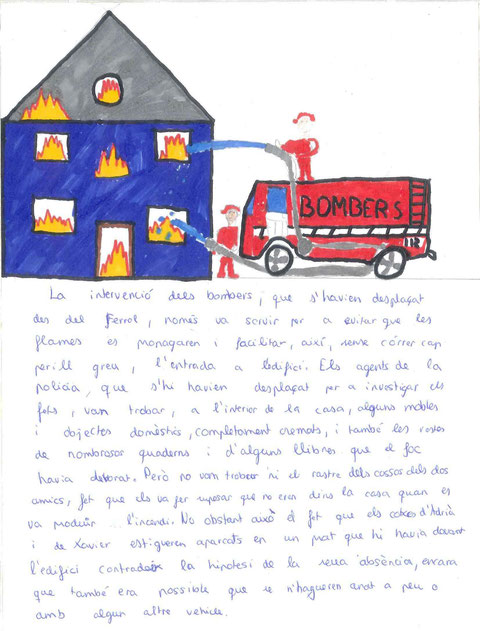 BOMBERS
La intervenció dels bombers, que s'havien desplaçat
des del Ferrol, només va servir per a evitar que les
flames es propagaren i facilitar, així, sense córrer cap
perill greu, l'entrada a l'edifici. Els agents de la
policia, que s'hi havien desplaçat per a investigar els
fets, van trobar, a l'interior de la casa, alguns mobles
i objectes domèstics, completament cremats, i també les restes
de nombrosos quaderns i d'alguns llibres que el foc
havia devorat. Però no vam trobar ni el rastre dels cossos dels dos
amics, fet que els va fer suposar que no eren dins la casa quan es
va produir ... l'incendi. No obstant això el fet que els cotxes d'Adrià
i de Xavier estigueren aparcats en un prat que hi havia davant
l'edifici contradeia la hipòtesi de la seua absència, encara
que també era possible que se n'hagueren anat a peu o
amb algun altre vehicle.